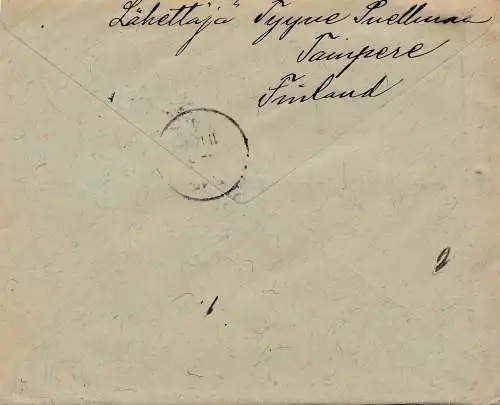 Lähettäjä Tyyne Puellman
Tampere
Finland
2